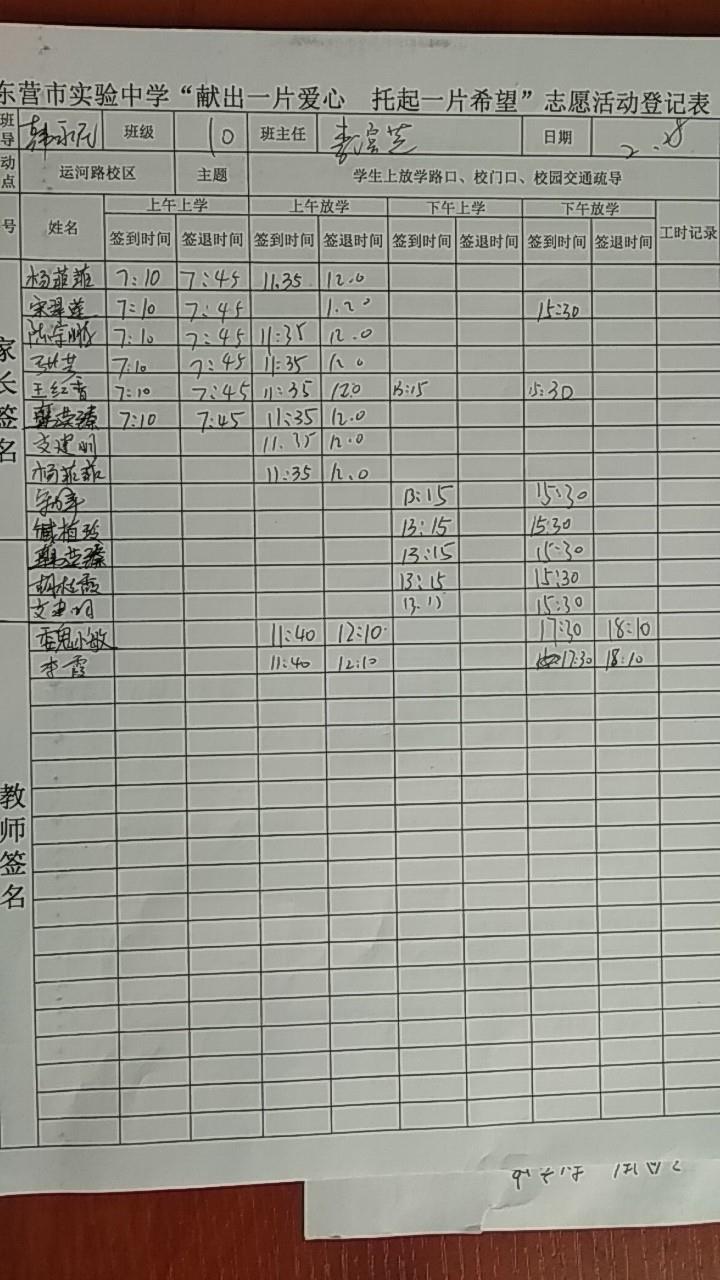 东营市实验中学“献出一片爱心 托起一片希望”志愿活动登记表
班导 韩永民 班级 10 班主任 李滨芝 日期 2.28
动点 运河路校区 主题 学生上放学路口、校门口、校园交通疏导
号 姓名 上午上学 上午放学 下午上学 下午放学 工时记录
签到时间 签退时间 签到时间 签退时间 签到时间 签退时间 签到时间 签退时间
家长签名
杨菲菲 7:10 7:45 11.35 12.0
宋翠莲 7:10 7:45 1.20 15:30
陆宗鹏 7:10 7:45 11:35 12.0
7:10 7:45 11:35 12.0
王红香 7:10 7:45 11:35 12.0 13:15 15:30
7:10 7:45 11:35 12.0
文建明 11.35 12.0
杨菲菲 11:35 12.0
13:15 15:30
臧植玲 13:15 15:30
13:15 15:30
胡桂霞 13:15 15:30
文建明 13.15 15:30
教师签名
魏小敏 11:40 12:10 17:30 18:10
李霞 11:40 12:10 17:30 18:10